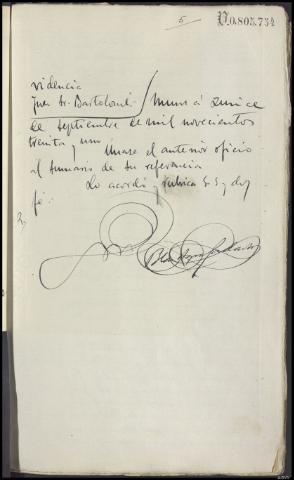 5 V.0.805.734
videncia
Juez Sr. Bartolomé / Murcia
de septiembre de mil novecientos
treinta y uno
Unase el anterior oficio
al sumario de su referencia
Lo acordó y rubrica S.S. y doy
fé.